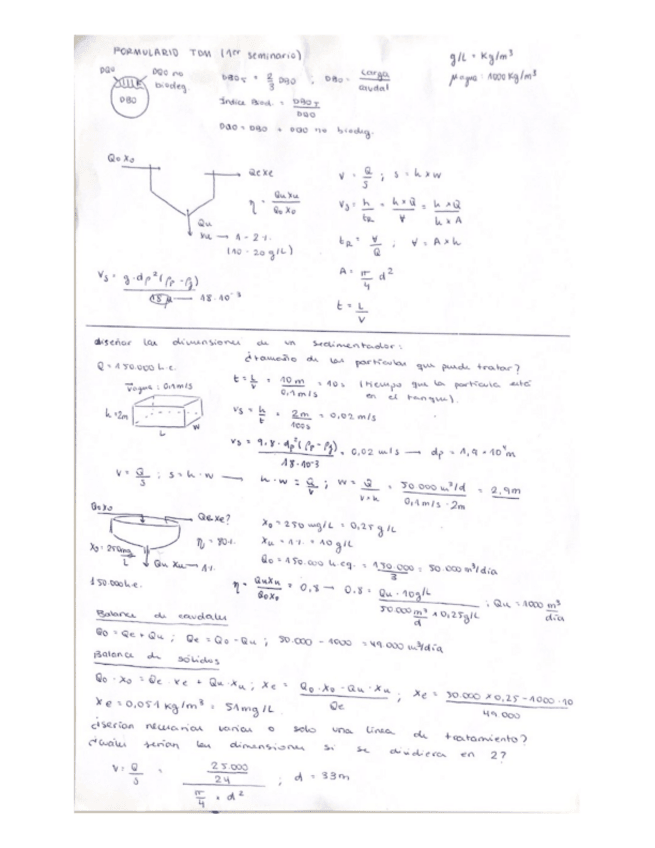 FORMULARIO TDM (1er seminario)
g/L = Kg/m³
ρagua: 1000 Kg/m³
DQO
DQO no biodeg.
DBO
DBO5 = 2/3 DQO , DBO = carga/caudal
Indice Biod. = DBO5/DQO
DQO = DBO + DQO no biodeg.
Q0 X0
Qe Xe
η = Qu Xu/Q0 X0
Qu
Xu → 1 - 2%
(10 - 20 g/L)
V = Q/S ; S = h × W
Vs = h/tR = h × Q/V = h × Q/h × A
tR = V/Q ; V = A × h
A = π/4 d²
t = L/V
Vs = g · dp² (ρp - ρg)/18 μ → 18·10⁻³
diseñar las dimensiones de un sedimentador:
¿tamaño de las partículas que puede tratar?
Q = 150.000 h.e.
Vagua: 0,1 m/s
h = 2m
L
W
t = L/V = 10 m/0,1 m/s = 10s (tiempo que la partícula está en el tanque).
Vs = h/t = 2m/100s = 0,02 m/s
Vs = 9,8 · dp² (ρp - ρg)/18·10⁻³ = 0,02 m/s → dp = 1,9 × 10⁻⁴ m
V = Q/S ; S = h · W → h · W = Q/V ; W = Q/V × h = 50.000 m³/d/0,1 m/s · 2m = 2,9m
Q0 X0
Qe Xe?
η = 80%
X0 = 250 mg/L
Qu Xu → 1%
150.000 h.e.
X0 = 250 mg/L = 0,25 g/L
Xu = 1% = 10 g/L
Q0 = 150.000 h.eq. = 150.000/3 = 50.000 m³/día
η = Qu Xu/Q0 X0 = 0,8 → 0,8 = Qu · 10 g/L/50.000 m³/d × 0,25 g/L ; Qu = 1000 m³/día
Balance de caudales
Q0 = Qe + Qu ; Qe = Q0 - Qu ; 50.000 - 1000 = 49.000 m³/día
Balance de sólidos
Q0 · X0 = Qe · Xe + Qu · Xu ; Xe = Q0 · X0 - Qu · Xu/Qe ; Xe = 50.000 × 0,25 - 1000 · 10/49.000
Xe = 0,051 kg/m³ = 51 mg/L
¿serían necesarias varias o solo una línea de tratamiento?
¿cuáles serían las dimensiones si se dividiera en 2?
V = Q/S = 25.000/24/π/4 × d² ; d = 33m